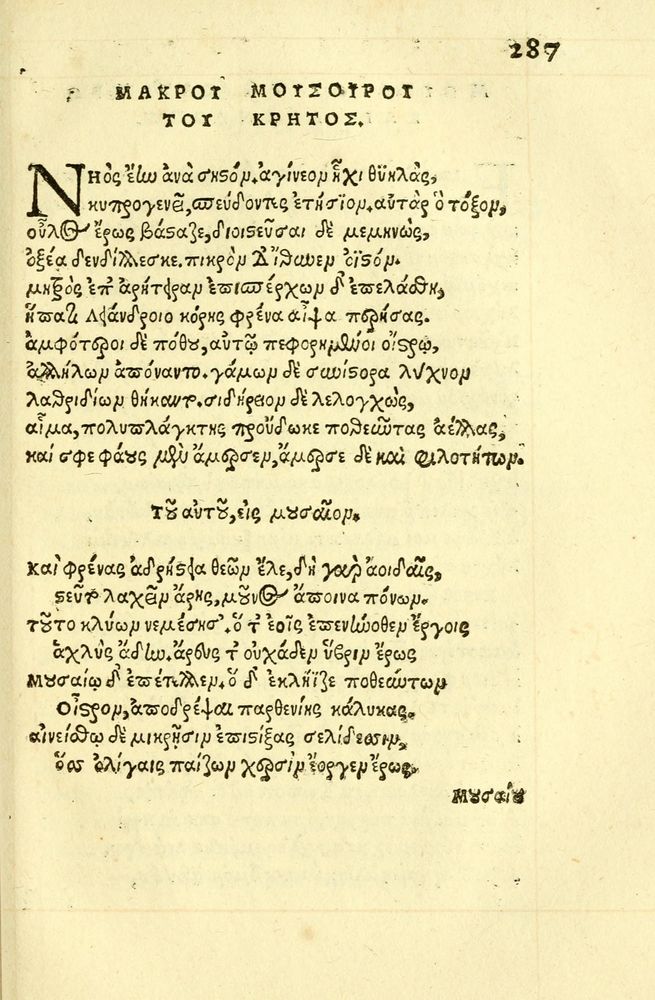 287
ΜΑΚΡΟΥ ΜΟΥΣΟΥΡΟΥ
ΤΟΥ ΚΡΗΤΟΣ.
Νηὸς ἔσω ἀνὰ σηστόν. ἀγίνεον ἧχι θυηλὰς,
κυπρογενεῖ, σπεύδοντες ἐτήσιον. αὐτὰρ ὁ τόξον,
οὖλος ἔρως βάσταζε, διοιστεῦσαι δὲ μεμηνὼς,
ὀξέα δενδίλλεσκε. πικρὸν δ' ἴθυνεν ὀϊστόν.
μητρὸς ἐπ' ἀρήτειραν ἐπισπέρχων δ' ἐπελάσθη,
ἥπατι λφάνδροιο κόρης φρένα αἶψα περήσας.
ἀμφότεροι δὲ πόθου, αὐτῷ πεφορημένοι οἴστρῳ,
ἀλλήλων ἀπόναντο. γάμων δὲ συνίστορα λύχνον
λαθριδίων θήκαντο. σιδήρειον δὲ λελογχὼς,
αἷμα, πολυπλάγκτης προύδωκε ποθεῦντας ἀέλλας,
καί σφε φάους μὲν ἄμερσεν, ἄμερσε δὲ καὶ φιλοτήτων.
Τοῦ αὐτοῦ, εἰς μουσαῖον.
Καὶ φρένας ἀδρήστεια θεῶν ἕλε, δὴ γὰρ ἀοιδαῖς,
στεῦτο λαχεῖν ἄρης, μοῦνος ἄποινα πόνων.
τοῦτο κλύων νεμέσησ'. ὅ τ' ἑοῖς ἐπενώθεν ἔργοις
ἀχλὺς ἄδιω. ἄρεος τ' οὐχάδεν ὕβριν ἔρως
μουσαίῳ δ' ἐπέτελλεν. ὁ δ' ἐκλήϊζε ποθεύντων
οἶστρον, ἀποδρέψαι παρθενίης κάλυκας.
αἰνείσθω δὲ μικρῇσιν ἐπιστίξας σελίδεσσιν,
ὅσσ' ὀλίγαις παίζων χερσὶν ἔοργεν ἔρως.
Μουσαίου